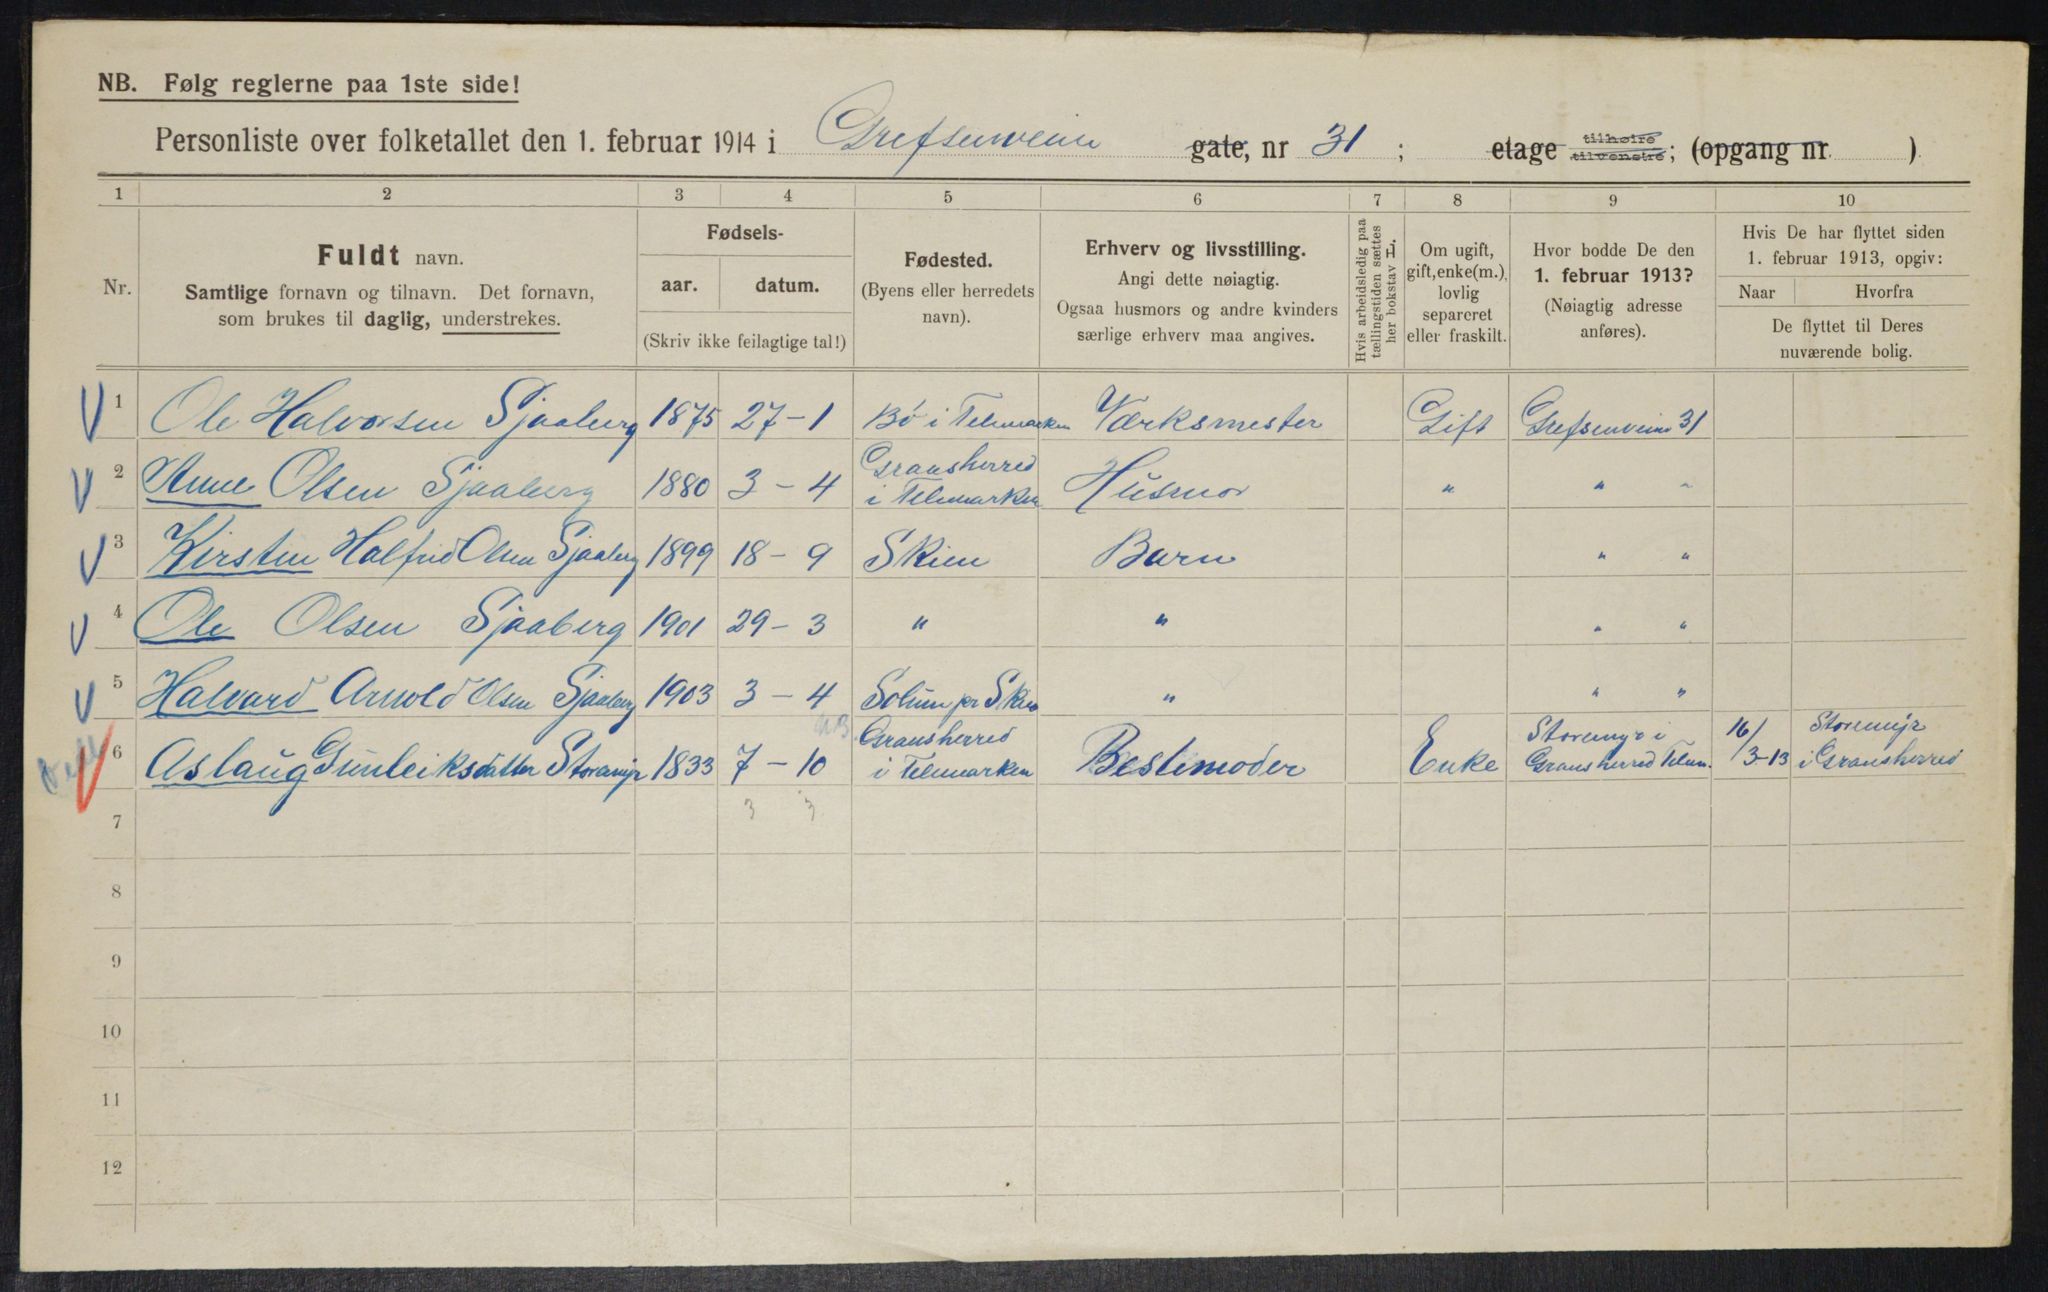 NB. Følg reglerne paa 1ste side!
Personliste over folketallet den 1. februar 1914 i Grefsenveien gate, nr 31 ; etage tilhøire tilvenstre; (opgang nr )
1 2 3 4 5 6 7 8 9 10
Nr.
Fuldt navn.
Samtlige fornavn og tilnavn. Det fornavn,
som brukes til daglig, understrekes.
Fødsels-
aar. datum.
(Skriv ikke feilagtige tal!)
Fødested.
(Byens eller herredets
navn).
Erhverv og livsstilling.
Angi dette nøiagtig.
Ogsaa husmors og andre kvinders
særlige erhverv maa angives.
Hvis arbeidsledig paa
tællingstiden sættes
her bokstav L.
Om ugift,
gift, enke(m.),
lovlig
separeret
eller fraskilt.
Hvor bodde De den
1. februar 1913?
(Nøiagtig adresse
anføres).
Hvis De har flyttet siden
1. februar 1913, opgiv:
Naar Hvorfra
De flyttet til Deres
nuværende bolig.
1 Ole Halvorsen Sjaaberg 1875 27-1 Bø i Telemarken Værksmester Gift Grefsenveien 31
2 Anne Olsen Sjaaberg 1880 3-4 Gransherred i Telemarken Husmor " " "
3 Kirsten Halfrid Olsen Sjaaberg 1899 18-9 Skien Barn " "
4 Ole Olsen Sjaaberg 1901 29-3 " " " "
5 Halvard Arnold Olsen Sjaaberg 1903 3-4 Solum pr Skien " " "
6 Aslaug Gunleiksdatter Storemyr 1833 7-10 Gransherred i Telemarken Bestemoder Enke Storemyr i Gransherred Telem. 16/3-13 Storemyr i Gransherred
3 3
7
8
9
10
11
12